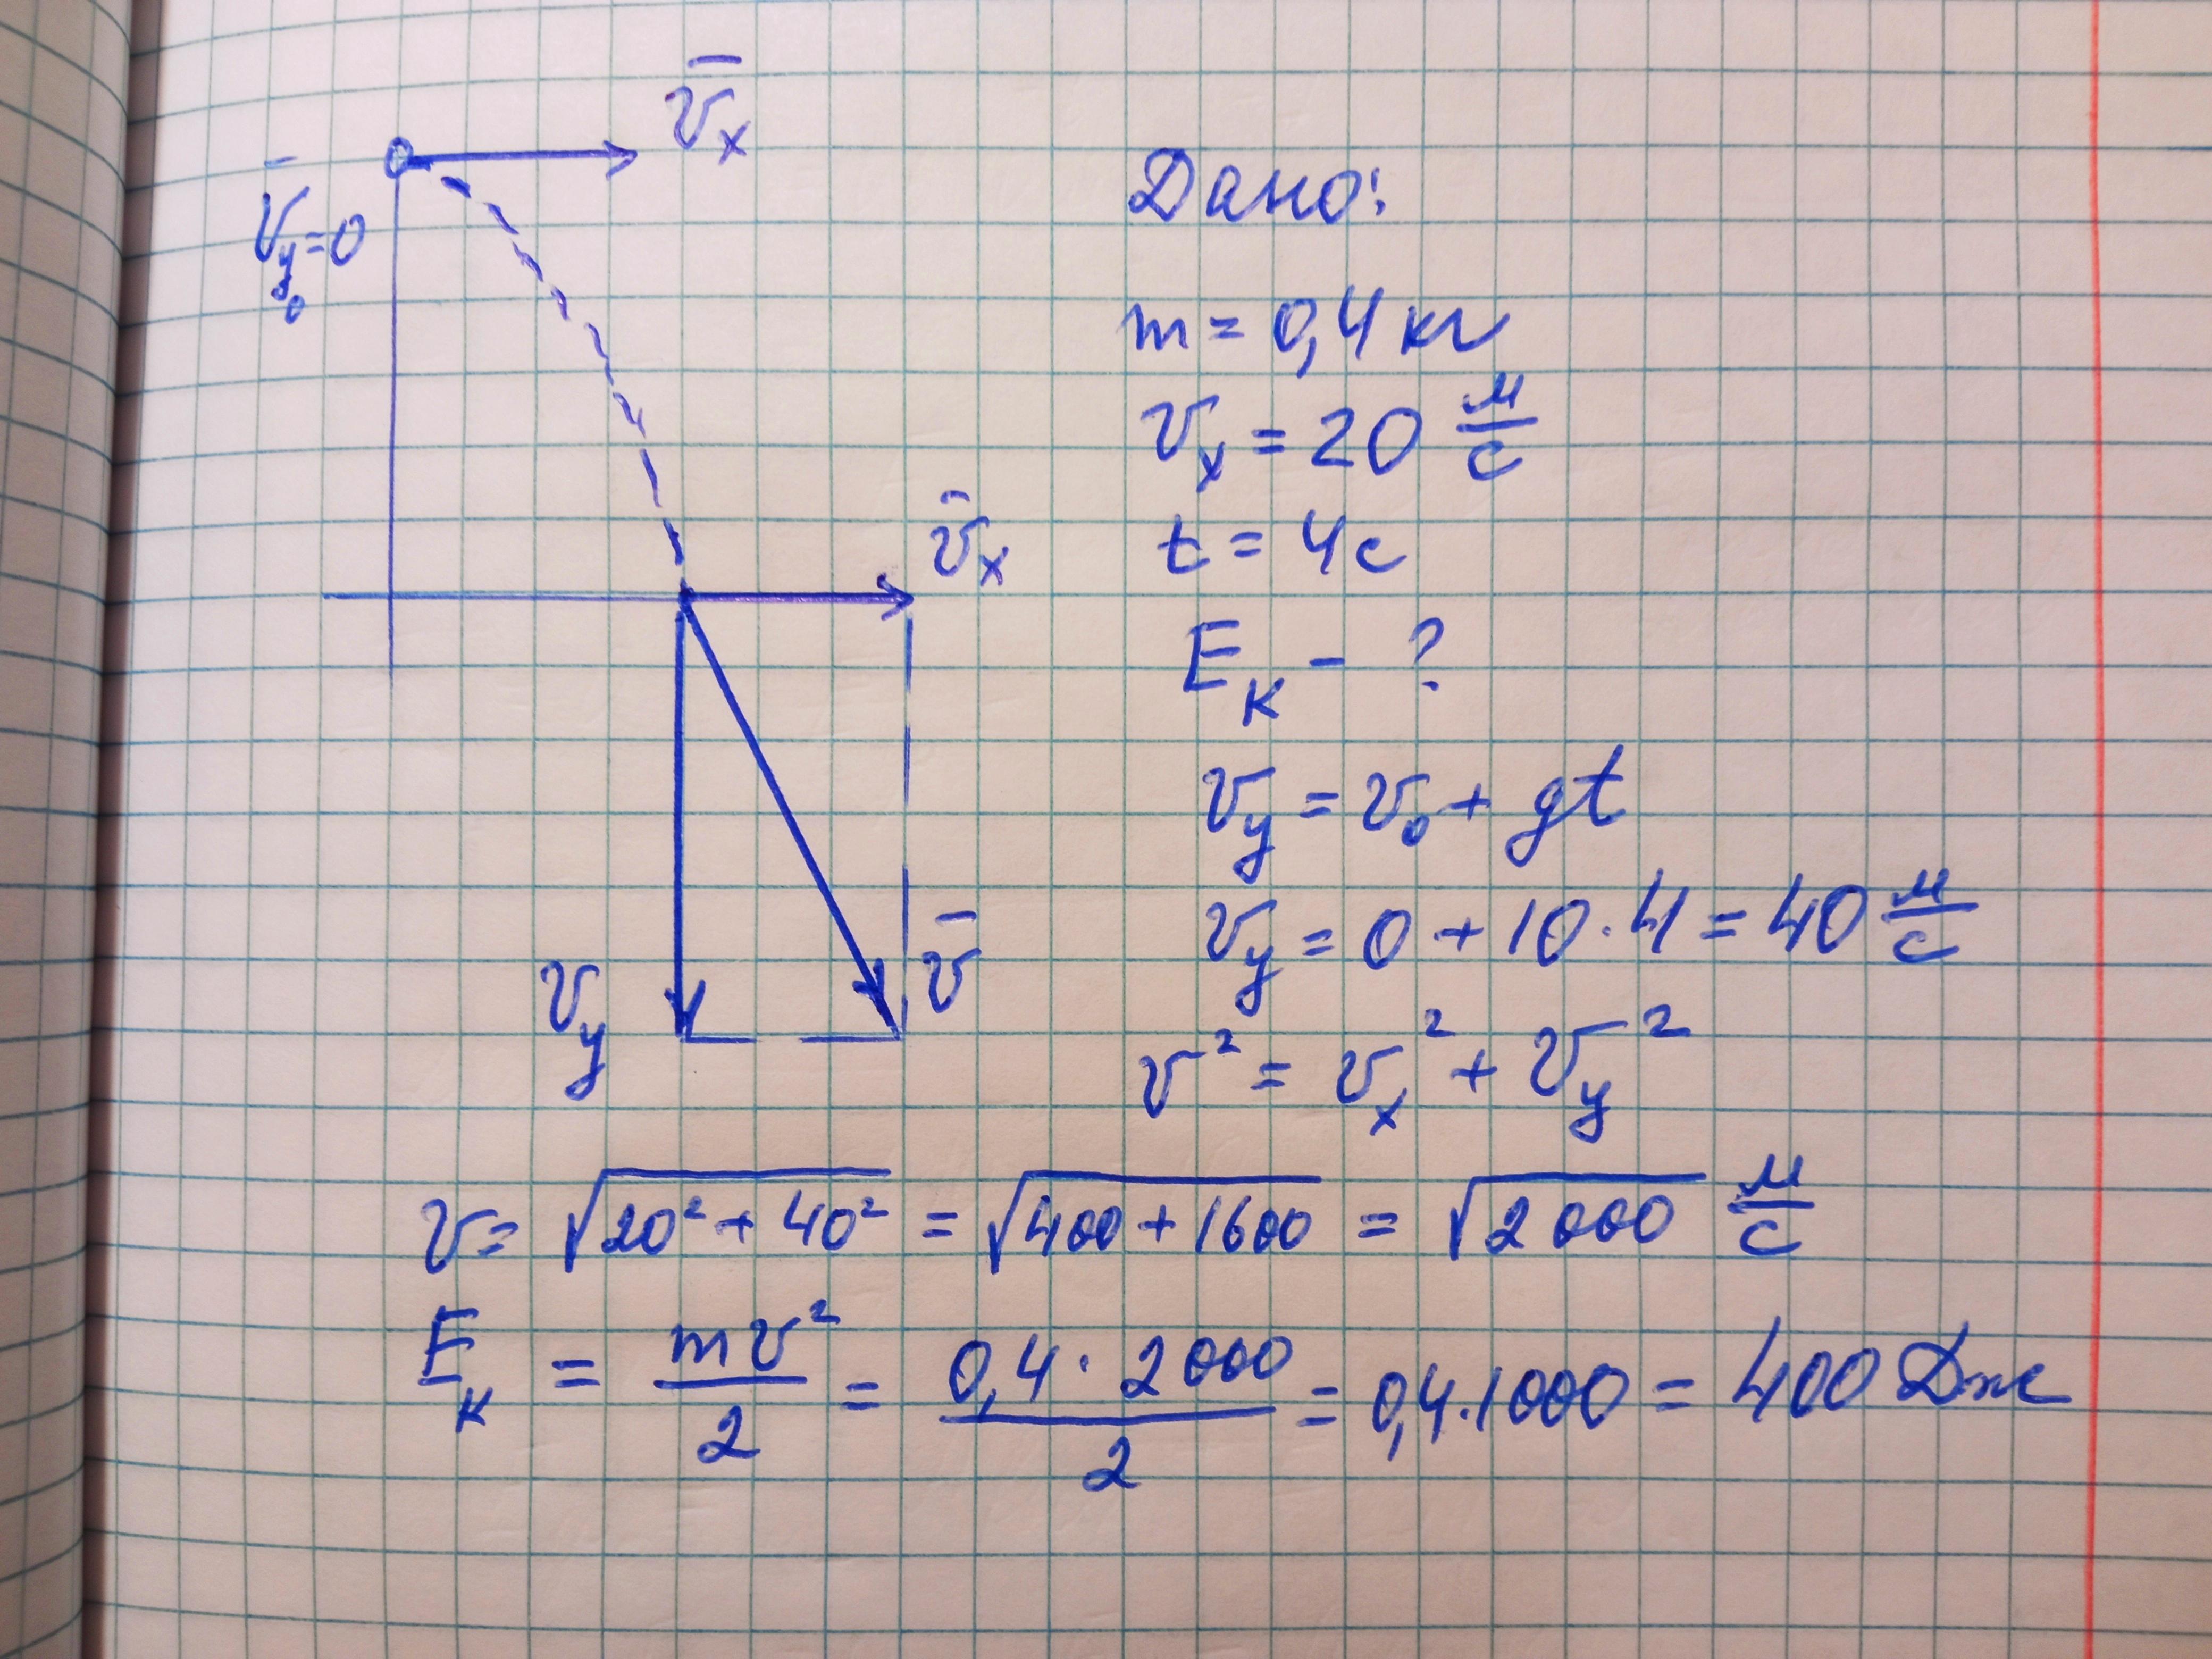 v̄ₓ
v̄y₀=0
Дано:
m = 0,4 кг
vₓ = 20 м/с
t = 4с
v̄ₓ
Eк - ?
vy = v₀ + gt
vy = 0 + 10·4 = 40 м/с
v̄
vy
v² = vₓ² + vy²
v = √(20² + 40²) = √(400 + 1600) = √2000 м/с
Eк = mv²/2 = 0,4·2000/2 = 0,4·1000 = 400 Дж